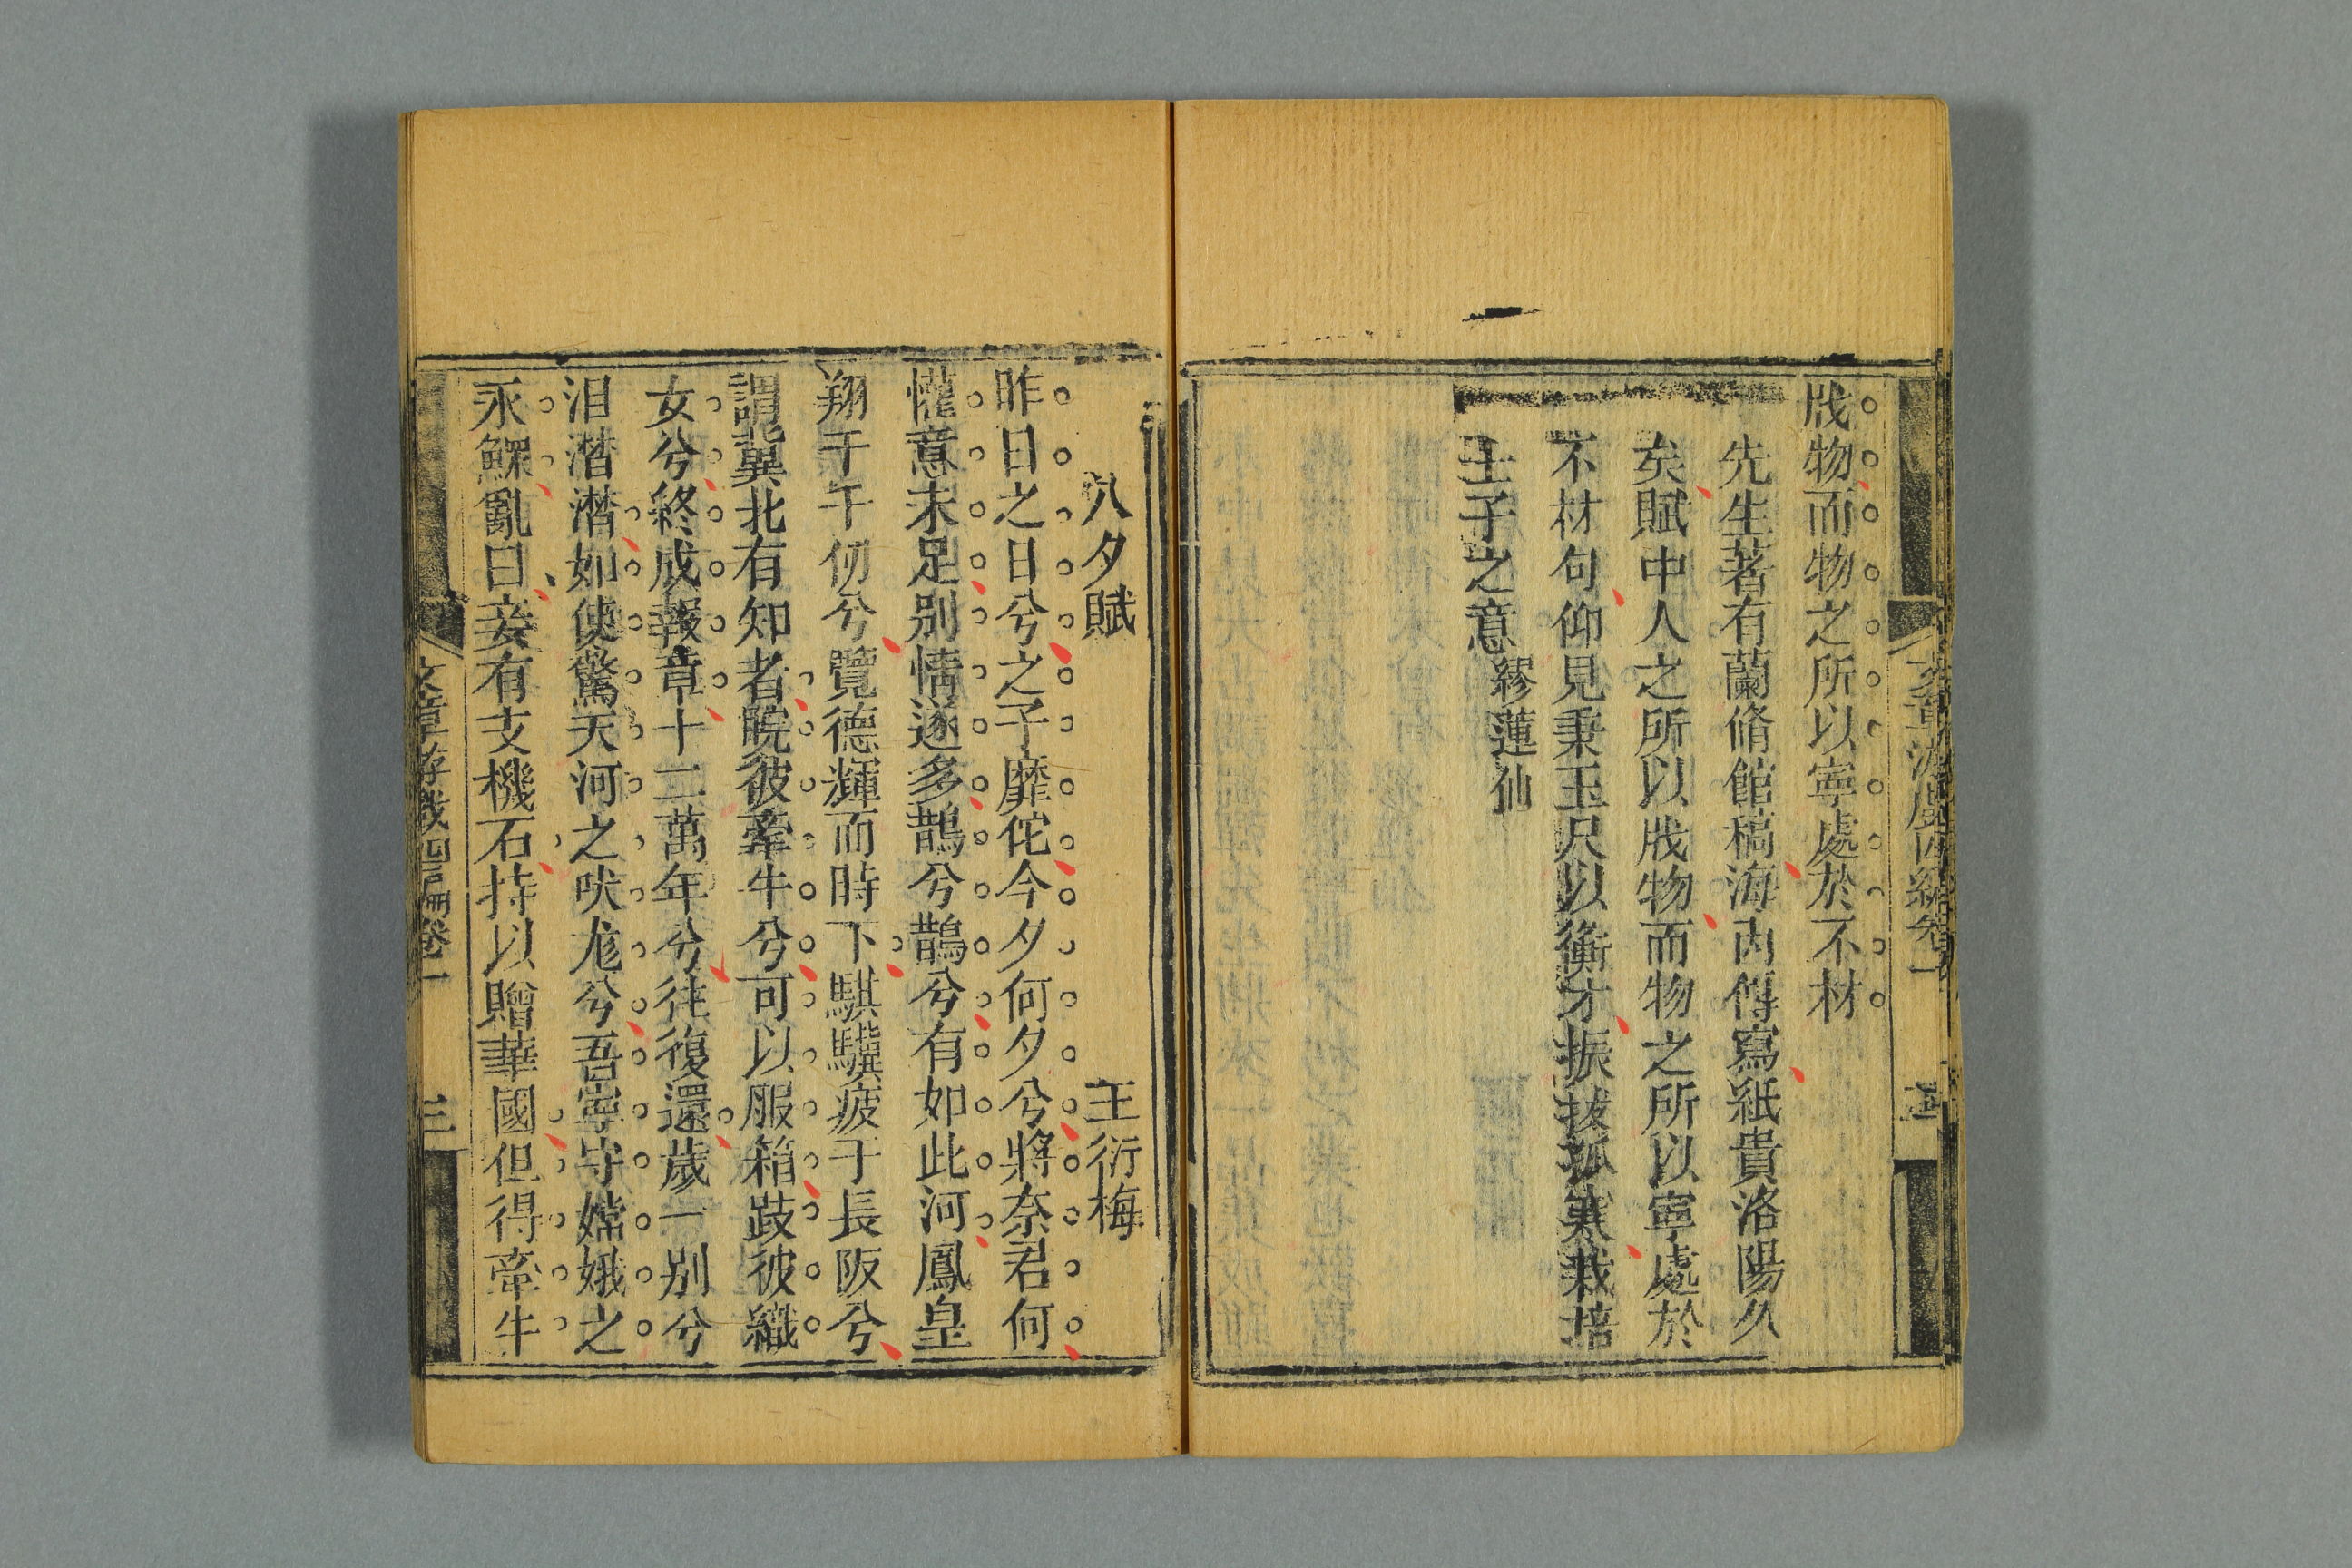 戕物而物之所以寧處於不材
先生著有蘭脩館稿海內傳寫紙貴洛陽久
矣賦中人之所以戕物而物之所以寧處於
不材句仰見秉玉尺以衡才振拔孤寒栽培
士子之意繆蓮仙
八夕賦 王衍梅
昨日之日兮之子靡佗今夕何夕兮將奈君何
懽意未足別情遂多鵲兮鵲兮有如此河鳳皇
翔于千仞兮覽德輝而時下騏驥疲于長阪兮
謂冀北有知者睆彼牽牛兮可以服箱跂彼織
女兮終成報章十二萬年兮往復還歲一別兮
泪潸潸如使驚天河之吠尨兮吾寧守嫦娥之
永鰥亂曰妾有支機石持以贈華國但得牽牛
文章游戲四編卷一 三